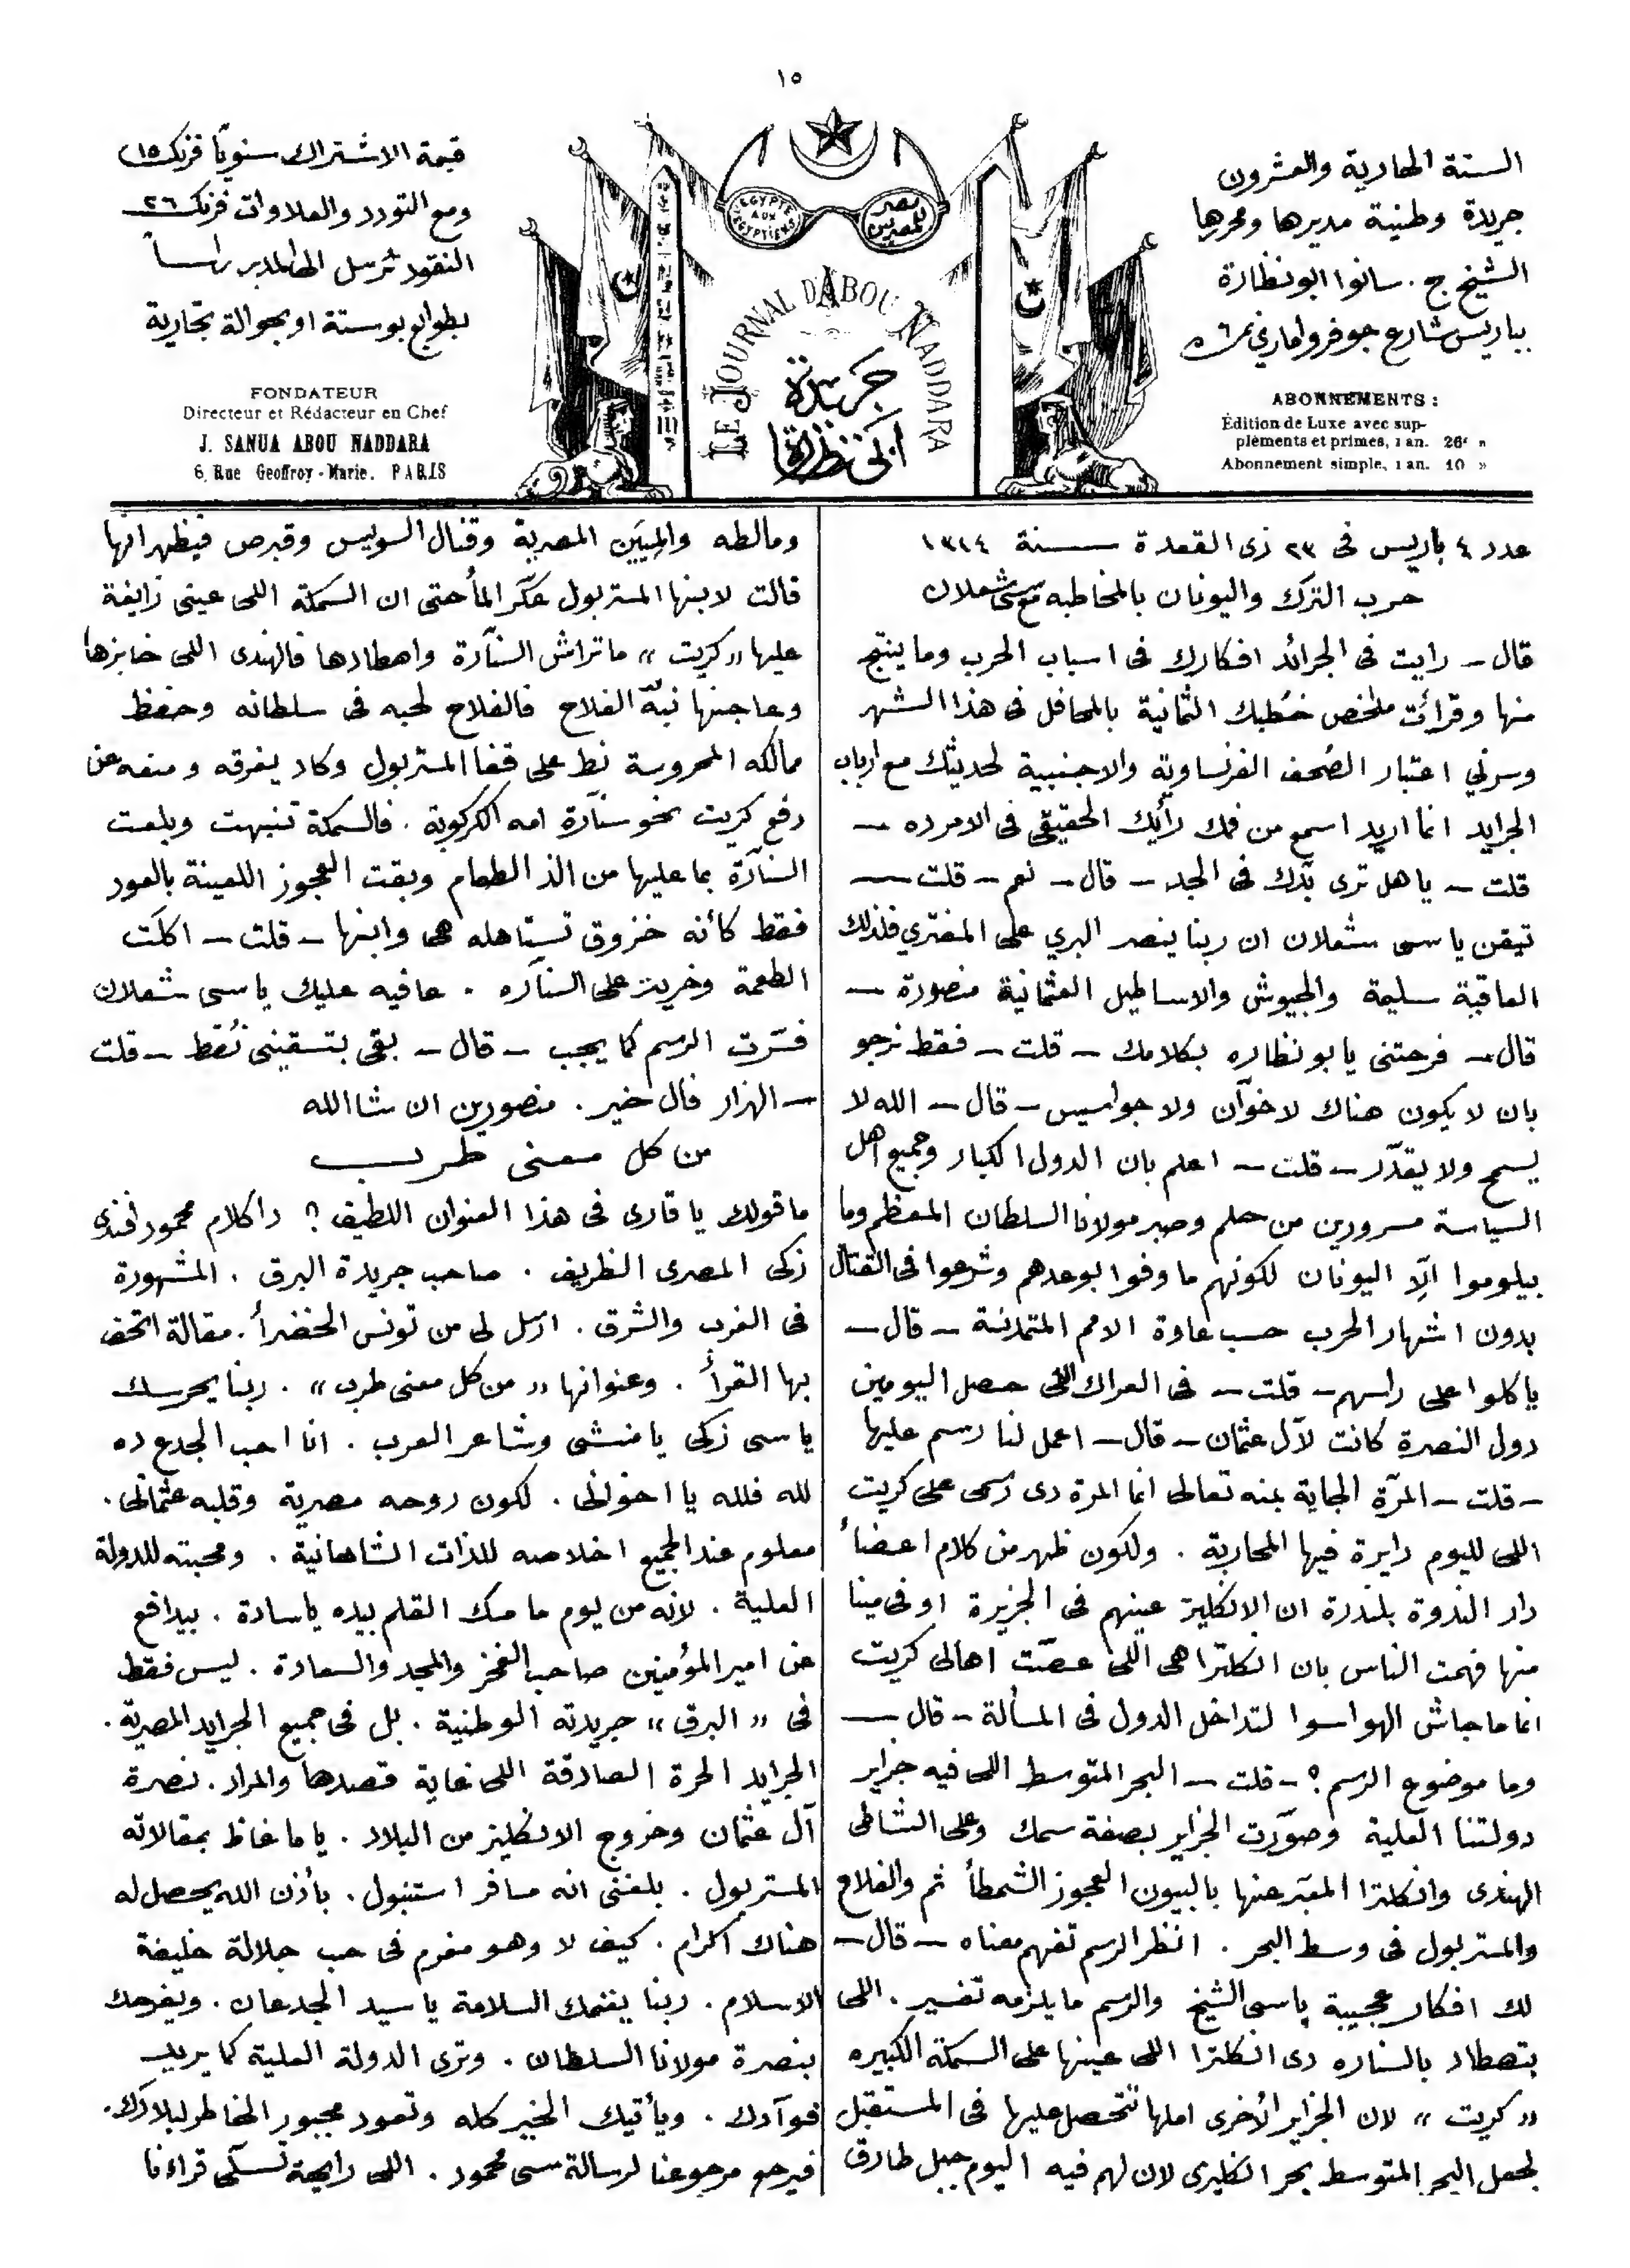 ١٥
السنة الحادية والعشرون
جريدة وطنية مديرها ومحررها
الشيخ ج. سانوا ابو نظارة
بباريس شارع جوفروا ماري نمر ٦
ABONNEMENTS :
Édition de Luxe avec sup-
pléments et primes, 1 an. 26f »
Abonnement simple, 1 an. 10 »
EGYPTE
AUX
EGYPTIENS
مصر
للمصريين
LE JOURNAL D'ABOU NADDARA
جريدة
ابي نظارة
قيمة الاشتراك سنويًا فرنك ١٥
ومع التورد والعلاوات فرنك ٢٦
النقود ترسل الى المدير راساً
بطوابع بوستة او بحوالة تجارية
FONDATEUR
Directeur et Rédacteur en Chef
J. SANUA ABOU NADDARA
6, Rue Geoffroy-Marie. PARIS
عدد ٤ باريس فى ٢٣ ذى القعدة سنة ١٣١٤
حرب الترك واليونان بالمخاطبه مع سى شعلان
قال – رايت فى الجرائد افكارك فى اسباب الحرب وما ينتج
منها وقرائت ملخص خطبك الثمانية بالمحافل فى هذا الشهر
وسرني اعتبار الصُحف الفرنساوية والاجنبية لحديثك مع ارباب
الجرايد انما اريد اسمع من فمك رأيك الحقيقى فى الامر ده –
قلت – يا هل ترى بدّك فى الجد – قال – نعم – قلت –
تيقن يا سى شعلان ان ربنا ينصر البري على المفترى فلذلك
العاقبة سليمة والجيوش والاساطيل العثمانية منصورة –
قال – فرحتنى يا بو نظاره بكلامك – قلت – فقط نرجو
بان لا يكون هناك لا خوّان ولا جواسيس – قال – الله لا
يسمح ولا يقدّر – قلت – اعلم بان الدول الكبار وجميع اهل
السياسة مسرورين من حلم وصبر مولانا السلطان المعظم وما
بيلوموا الّا اليونان لكونهم ما وفوا بوعدهم وشرعوا فى القتال
بدون اشهار الحرب حسب عاوة الامم المتمدنة – قال –
ياكلوا على راسهم – قلت – فى العراك اللى حصل اليومين
دول النصرة كانت لآل عثمان – قال – اعمل لنا رسم عليها
– قلت – المرّة الجاية بمنه تعالى انما المرة دى رسمى على كريت
اللى لليوم دايرة فيها المحاربة . ولكون ظهر من كلام اعضاء
دار الندوة بلندرة ان الانكليز عينهم فى الجزيرة او فى مينا
منها فهمت الناس بان انكلترا هى اللى عصّت اهالى كريت
انما ما جاش الهوا سوا لتداخل الدول فى المسألة – قال –
وما موضوع الرسم ؟ – قلت – البحر المتوسط اللى فيه جزاير
دولتنا العلية وصوّرت الجزاير بصفة سمك وعلى الشاطى
الهندى وانكلترا المعبّر عنها بالبيون العجوز الشمطأ ثم والفلاح
والمستربول فى وسط البحر . انظر الرسم تفهم معناه – قال –
لك افكار عجيبة ياسى الشيخ والرسم ما يلزمه تفسير . اللى
بتصطاد بالسناره دى انكلترا اللى عينها على السمكة الكبيره
« كريت » لان الجزاير الأخرى املها تتحصل عليها فى المستقبل
لجعل البحر المتوسط بحر انكليزى لان لهم فيه اليوم جبل طارق
ومالطه والمينَين المصرية وقنال السويس وقبرص فيظهر انها
قالت لابنها المستربول عكّر المأ حتى ان السمكة اللى عينى زايغة
عليها « كريت » ما تراش السنآرة واصطادها فالهندى اللى خابزها
وعاجنها نبّه الفلاح فالفلاح لحبه فى سلطانه وحفظ
ممالكه المحروسة نط على قفا المستربول وكاد يغرقه ومنعه عن
دفع كريت نحو سنآرة امه الكركوبة . فالسمكة تنبهت وبلعت
السنآرة بما عليها من الذ الطعام وبقت العجوز اللعينة بالعود
فقط كأنه خزوق تستاهله هى وابنها – قلت – اكلت
الطعمة وخريت على السنآره . عافيه عليك ياسى شعلان
فسّرت الرسم كما يجب – قال – بقى بتسقينى نُقط – قلت
– الهزار فال خير . منصورين ان شا الله
من كل معنى طرب
ما قولك يا قارى فى هذا العنوان اللطيف ؟ دا كلام محمود افندى
زكى المصرى الظريف . صاحب جريدة البرق . المشهورة
فى الغرب والشرق . ارسل لى من تونس الخضرأ . مقالة اتحف
بها القرأ . وعنوانها « من كل معنى طرب » . ربنا يحرسك
ياسى زكى يا منشى وشاعر العرب . انا احب الجدع ده
لله فلله يا اخوانى . لكون روحه مصرية وقلبه عثمانى .
معلوم عند الجميع اخلاصه للذات الشاهانية . ومحبته للدولة
العلية . لانه من يوم ما مسك القلم بيده يا سادة . بيدافع
عن امير المؤمنين صاحب الفخر والمجد والسعادة . ليس فقط
فى « البرق » جريدته الوطنية . بل فى جميع الجرايد المصرية .
الجرايد الحرة الصادقة اللى غاية قصدها والمراد . نصرة
آل عثمان وخروج الانكليز من البلاد . ياما غاظ بمقالاته
المستربول . بلغنى انه مسافر استنبول . بأذن الله يحصل له
هناك اكرام . كيف لا وهو مغرم فى حب جلالة خليفة
الاسلام . ربنا يغنمك السلامة يا سيد الجدعان . ويفرحك
بنصرة مولانا السلطان . وترى الدولة العلية كما يريد
فوآدك . ويأتيك الخير كله وتعود مجبور الخاطر لبلادك .
فيرحو مرجوعنا لرسالة سى محمود . اللى رايحة تسلّى قراءنا